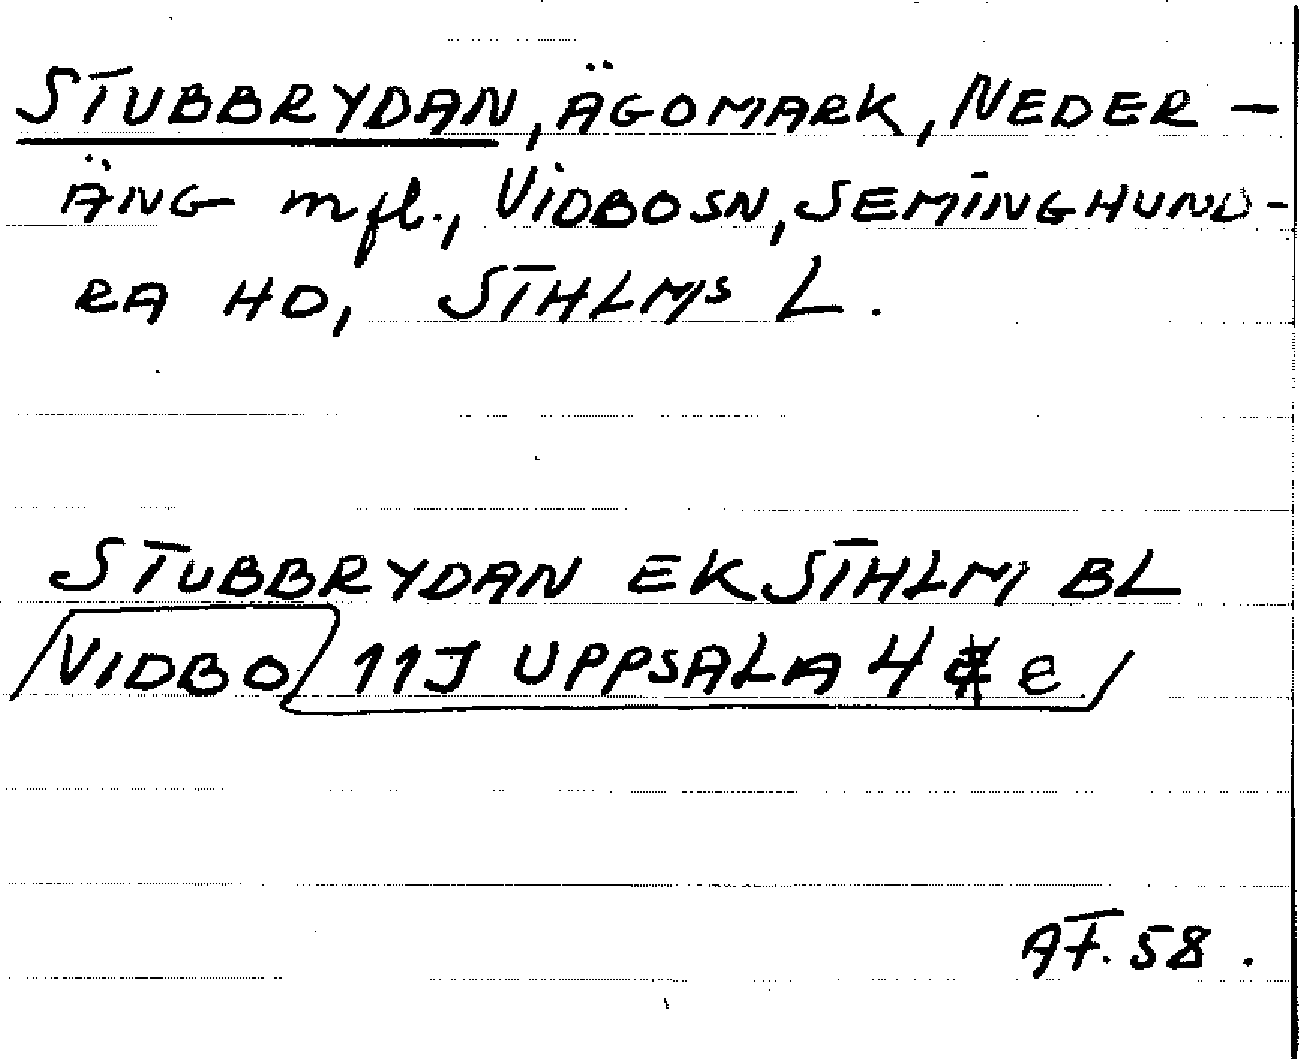 STUBBRYDAN, ÄGOMARK, NEDER-
ÄNG mfl., VIDBO SN, SEMINGHUND-
RA HD, STHLMS L.
STUBBRYDAN EK STHLM BL
VIDBO 11J UPPSALA 4 e
AF. 58.